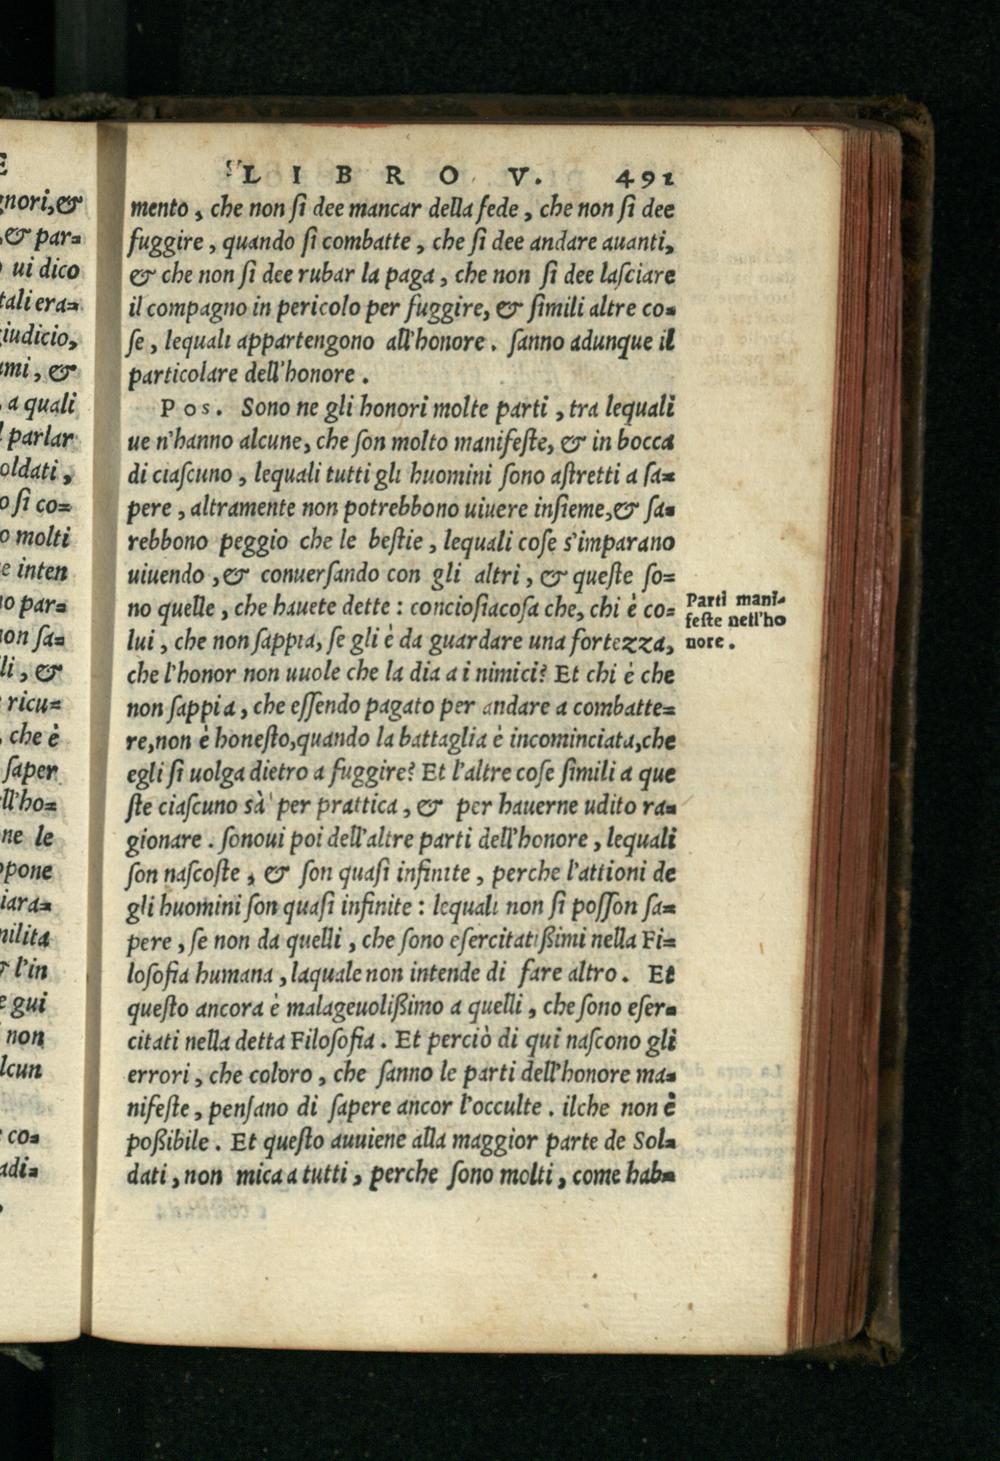 E
gnori, &
, & par=
ui dico
tali era=
giudicio,
, &
, a quali
l parlar
oldati,
o si co=
o molti
e inten
o par=
non sa=
li, &
ricu=
, che è
saper
ll'ho=
ne le
ppone
iara=
milita
l'in
e gui
non
lcun
co=
adi=
LIBRO V. 491
mento, che non ſi dee mancar della fede, che non ſi dee
fuggire, quando ſi combatte, che ſi dee andare auanti,
& che non ſi dee rubar la paga, che non ſi dee laſciare
il compagno in pericolo per fuggire, & ſimili altre co=
ſe, lequali appartengono all'honore. ſanno adunque il
particolare dell'honore.
Pos. Sono ne gli honori molte parti, tra lequali
ue n'hanno alcune, che ſon molto manifeſte, & in bocca
di ciaſcuno, lequali tutti gli huomini ſono aſtretti a ſa=
pere, altramente non potrebbono uiuere inſieme, & ſa=
rebbono peggio che le beſtie, lequali coſe s'imparano
uiuendo, & conuerſando con gli altri, & queſte ſo=
no quelle, che hauete dette: concioſiacoſa che, chi è co=
lui, che non ſappia, ſe gli è da guardare una fortezza,
che l'honor non uuole che la dia a i nimici? Et chi è che
non ſappia, che eſſendo pagato per andare a combatte=
re, non è honeſto, quando la battaglia è incominciata, che
egli ſi uolga dietro a fuggire? Et l'altre coſe ſimili a que
ſte ciaſcuno sà per prattica, & per hauerne udito ra=
gionare. ſonoui poi dell'altre parti dell'honore, lequali
ſon naſcoſte, & ſon quaſi infinite, perche l'attioni de
gli huomini ſon quaſi infinite: lequali non ſi poſſon ſa=
pere, ſe non da quelli, che ſono eſercitatißimi nella Fi=
loſofia humana, laquale non intende di fare altro. Et
queſto ancora è malageuolißimo a quelli, che ſono eſer=
citati nella detta Filoſofia. Et perciò di qui naſcono gli
errori, che coloro, che ſanno le parti dell'honore ma=
nifeſte, penſano di ſapere ancor l'occulte. ilche non è
poßibile. Et queſto auuiene alla maggior parte de Sol=
dati, non mica a tutti, perche ſono molti, come hab=
Parti mani=
feſte nell'ho
nore.